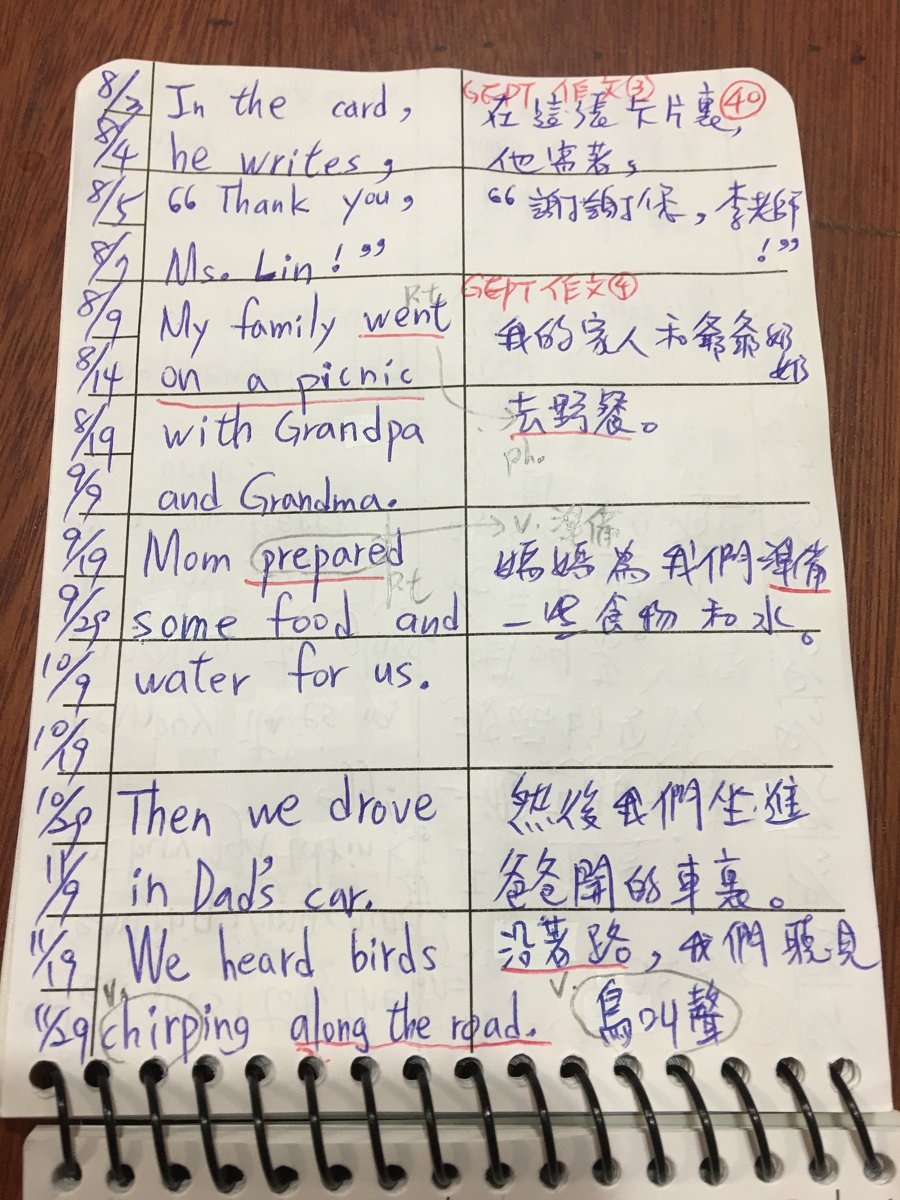 GEPT 作文③ ㊵
8/3 In the card, 在這張卡片裏,
8/4 he writes, 他寫著,
8/5 “Thank you, “謝謝你, 李老師
8/7 Ms. Lin!” !”
GEPT 作文④
pt
8/9 My family went 我的家人和爺爺奶奶
8/14 on a picnic
8/19 with Grandpa 去野餐。
ph.
9/9 and Grandma.
v. 準備
9/19 Mom prepared 媽媽為我們準備
pt
9/29 some food and 一些食物和水。
10/9 water for us.
10/19
10/29 Then we drove 然後我們坐進
11/9 in Dad's car. 爸爸開的車裏。
11/19 We heard birds 沿著路, 我們聽見
v. v.
11/29 chirping along the road. 鳥叫聲